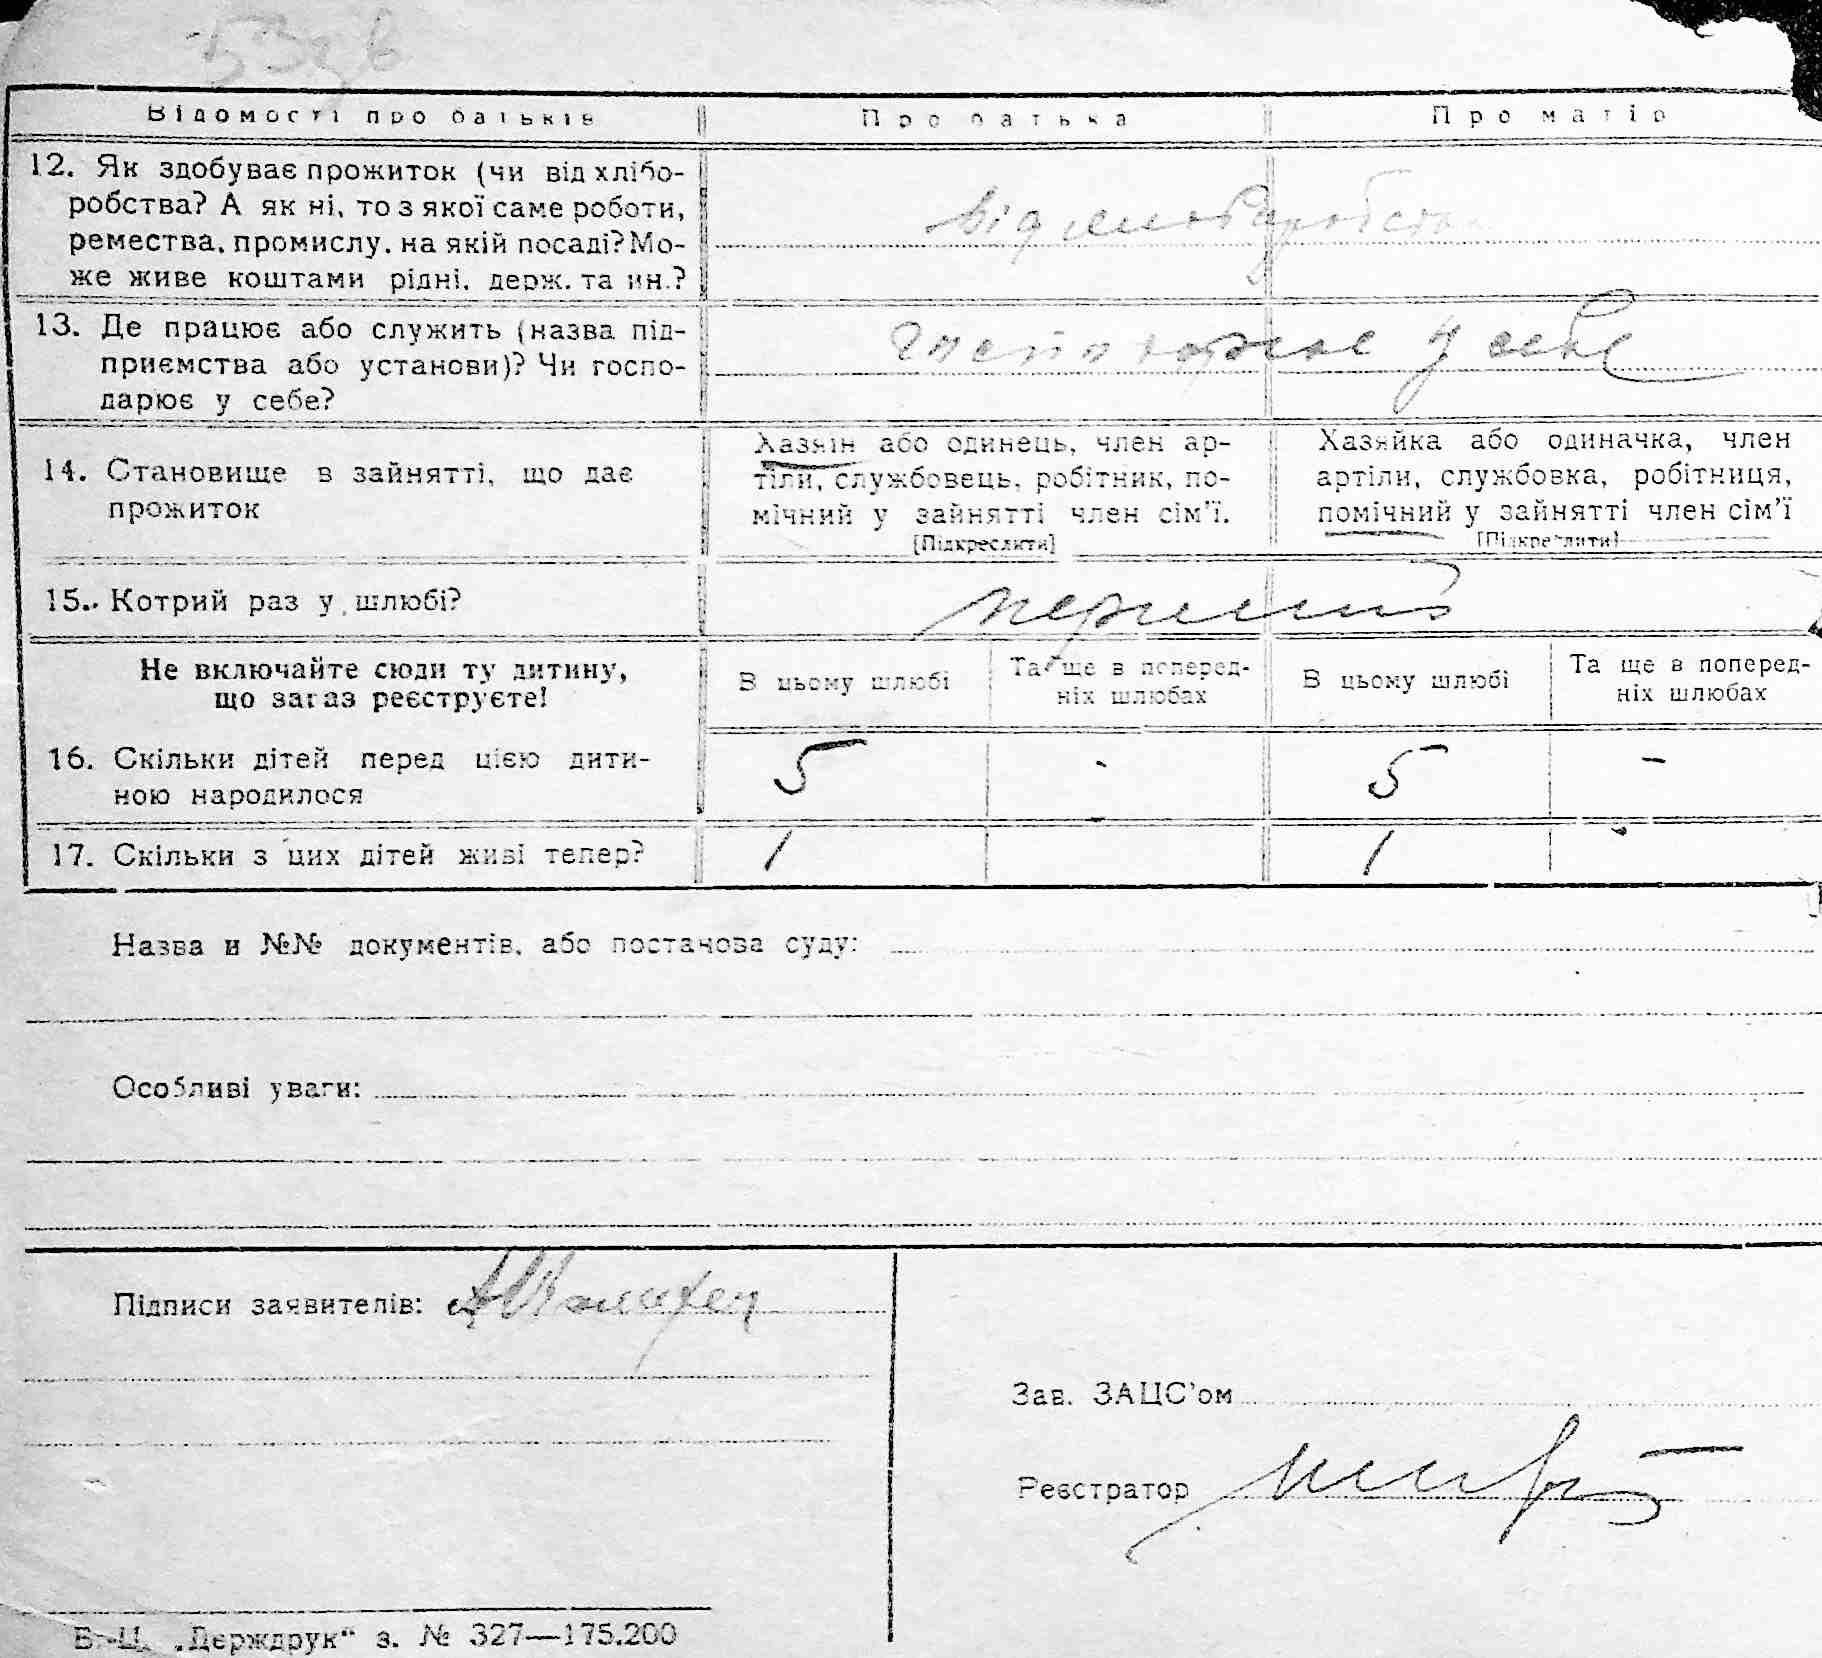 Відомості про батьків Про батька Про матір
12. Як здобуває прожиток (чи від хлібо-
робства? А як ні, то з якої саме роботи,
ремества, промислу, на якій посаді? Мо-
же живе коштами рідні, держ. та ин.?
від хліборобства
13. Де працює або служить (назва під-
приємства або установи)? Чи госпо-
дарює у себе?
господарює у себе
14. Становище в зайнятті, що дає
прожиток
Хазяїн або одинець, член ар-
тіли, службовець, робітник, по-
мічний у зайнятті член сім'ї.
[Підкреслити]
Хазяйка або одиначка, член
артіли, службовка, робітниця,
помічний у зайнятті член сім'ї
[Підкреслити]
15. Котрий раз у шлюбі?
перший
Не включайте сюди ту дитину,
що зараз реєструєте!
В цьому шлюбі
Та ще в поперед-
ніх шлюбах
В цьому шлюбі
Та ще в поперед-
ніх шлюбах
16. Скільки дітей перед цією дити-
ною народилося
5 - 5 -
17. Скільки з цих дітей живі тепер?
1 1 -
Назва и №№ документів, або постанова суду:
Особливі уваги:
Підписи заявителів:
Зав. ЗАЦС'ом
Реєстратор
Б.-Ц. „Держдрук" з. № 327—175.200